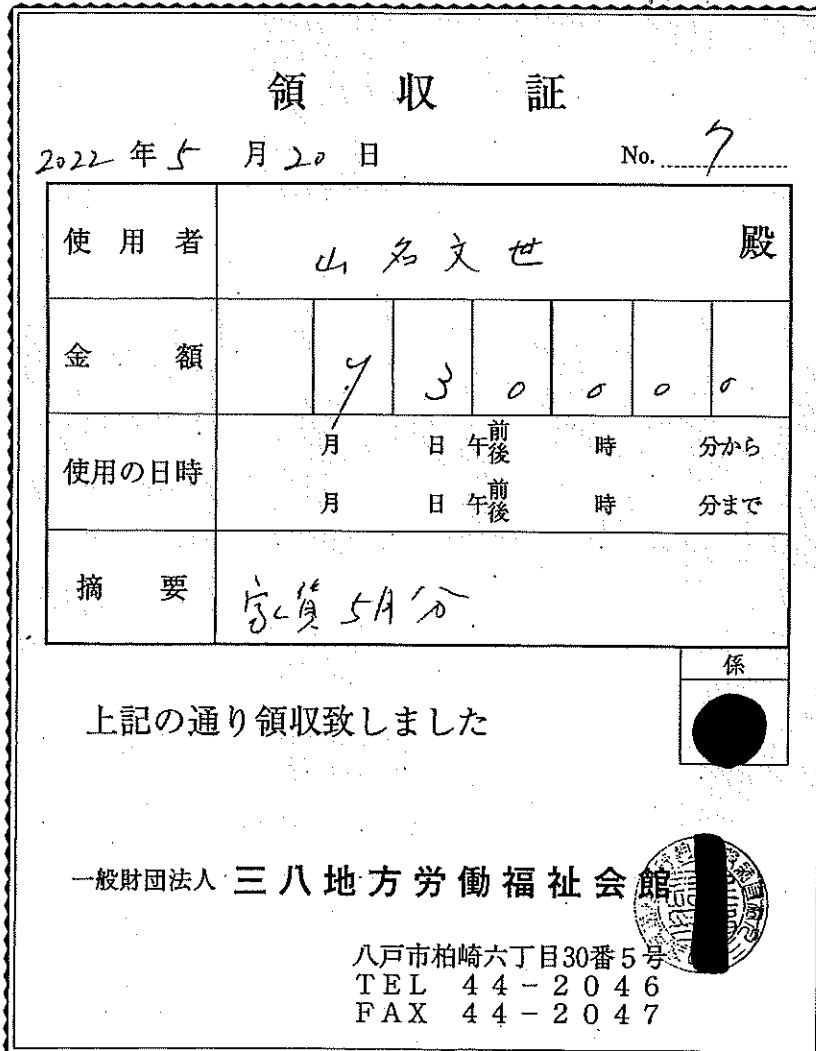 領収証
2022年5月20日 No. 7
使用者 山名文世 殿
金額 ¥30000
使用の日時 月 日 午前後 時 分から
月 日 午前後 時 分まで
摘要 家賃5月分
係
上記の通り領収致しました
一般財団法人 三八地方労働福祉会館
八戸市柏崎六丁目30番5号
TEL 44-2046
FAX 44-2047